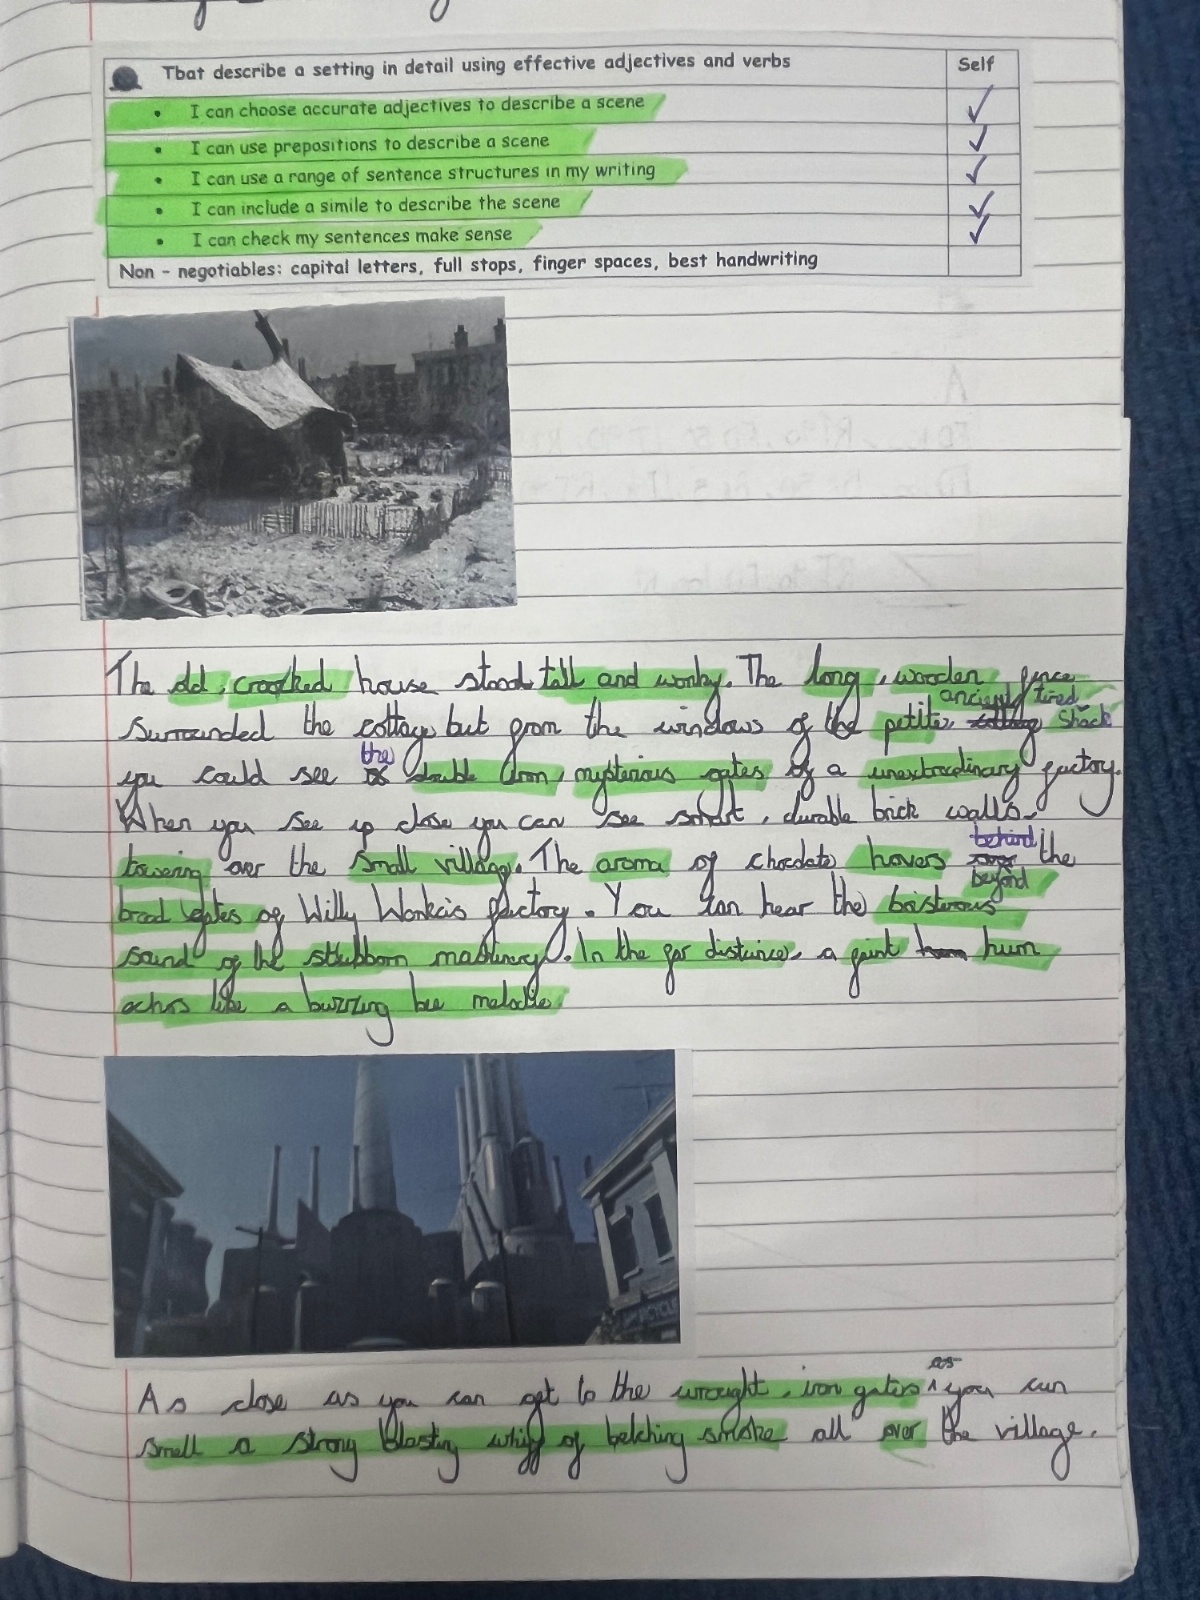 Tbat describe a setting in detail using effective adjectives and verbs
Self
• I can choose accurate adjectives to describe a scene ✓
• I can use prepositions to describe a scene ✓
• I can use a range of sentence structures in my writing ✓
• I can include a simile to describe the scene ✓
• I can check my sentences make sense ✓
Non - negotiables: capital letters, full stops, finger spaces, best handwriting
The old, crooked house stood tall and wonky. The long, wooden fence
anciently tired
surrounded the cottage but from the windows of the petite, cottage shack
the
you could see double iron, mysterious gates of a unextraordinary factory.
When you see up close you can see smart, durable brick walls
behind
towering over the small village. The aroma of chocolate hovers over the
beyond
broad gates of Willy Wonka's factory. You can hear the boisterous
sound of the stubborn machinery. In the far distance, a faint hum
echos like a buzzing bee melodie.
CYCLE
as
As close as you can get to the wrought, iron gates ^ you can
smell a strong blasting whiff of belching smoke all over the village.